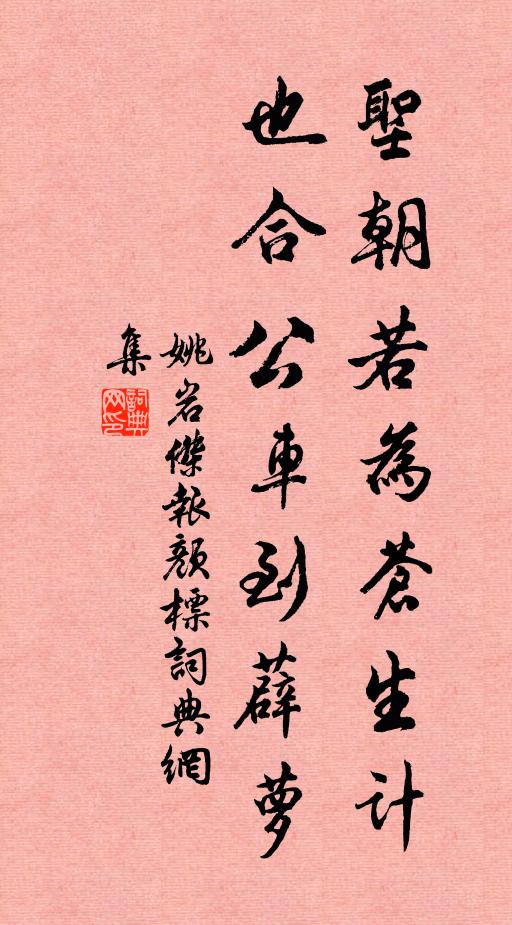 聖朝若為蒼生計
也合公車到薜蘿
姚岩傑報顏標詞典網
集
詞典
网印